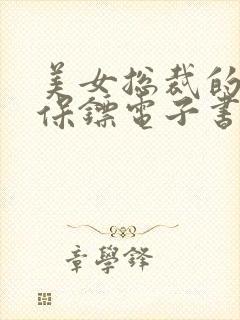 美女总裁的
保镖电子書
章學鋒